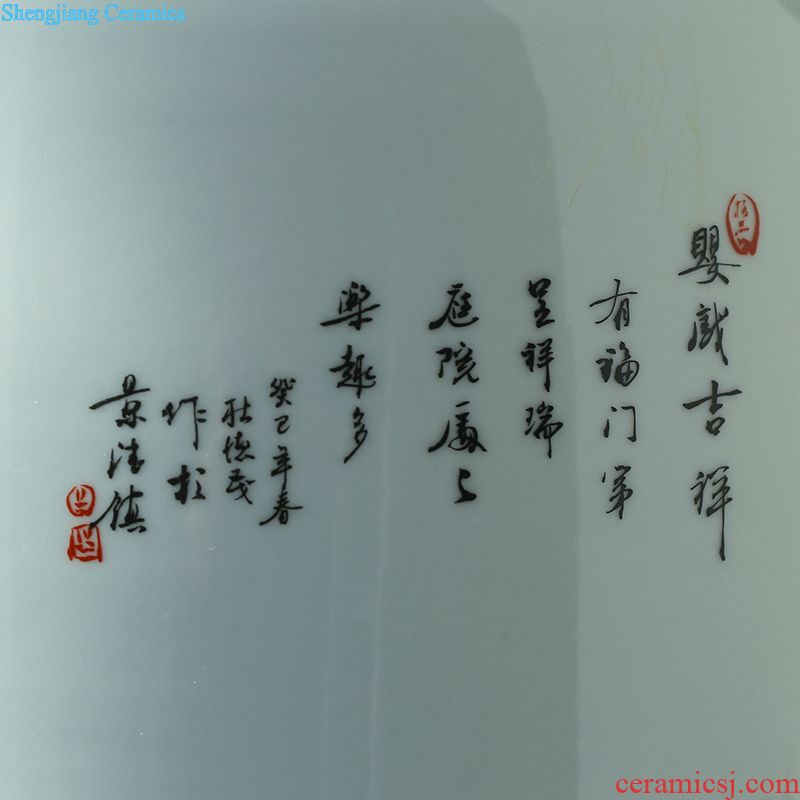 Shengjiang Ceramics
嬰戲吉祥
有福门第
呈祥瑞
庭院處々
樂趣多
癸巳年春
杜德茂
作於
景德镇
ceramicsj.com